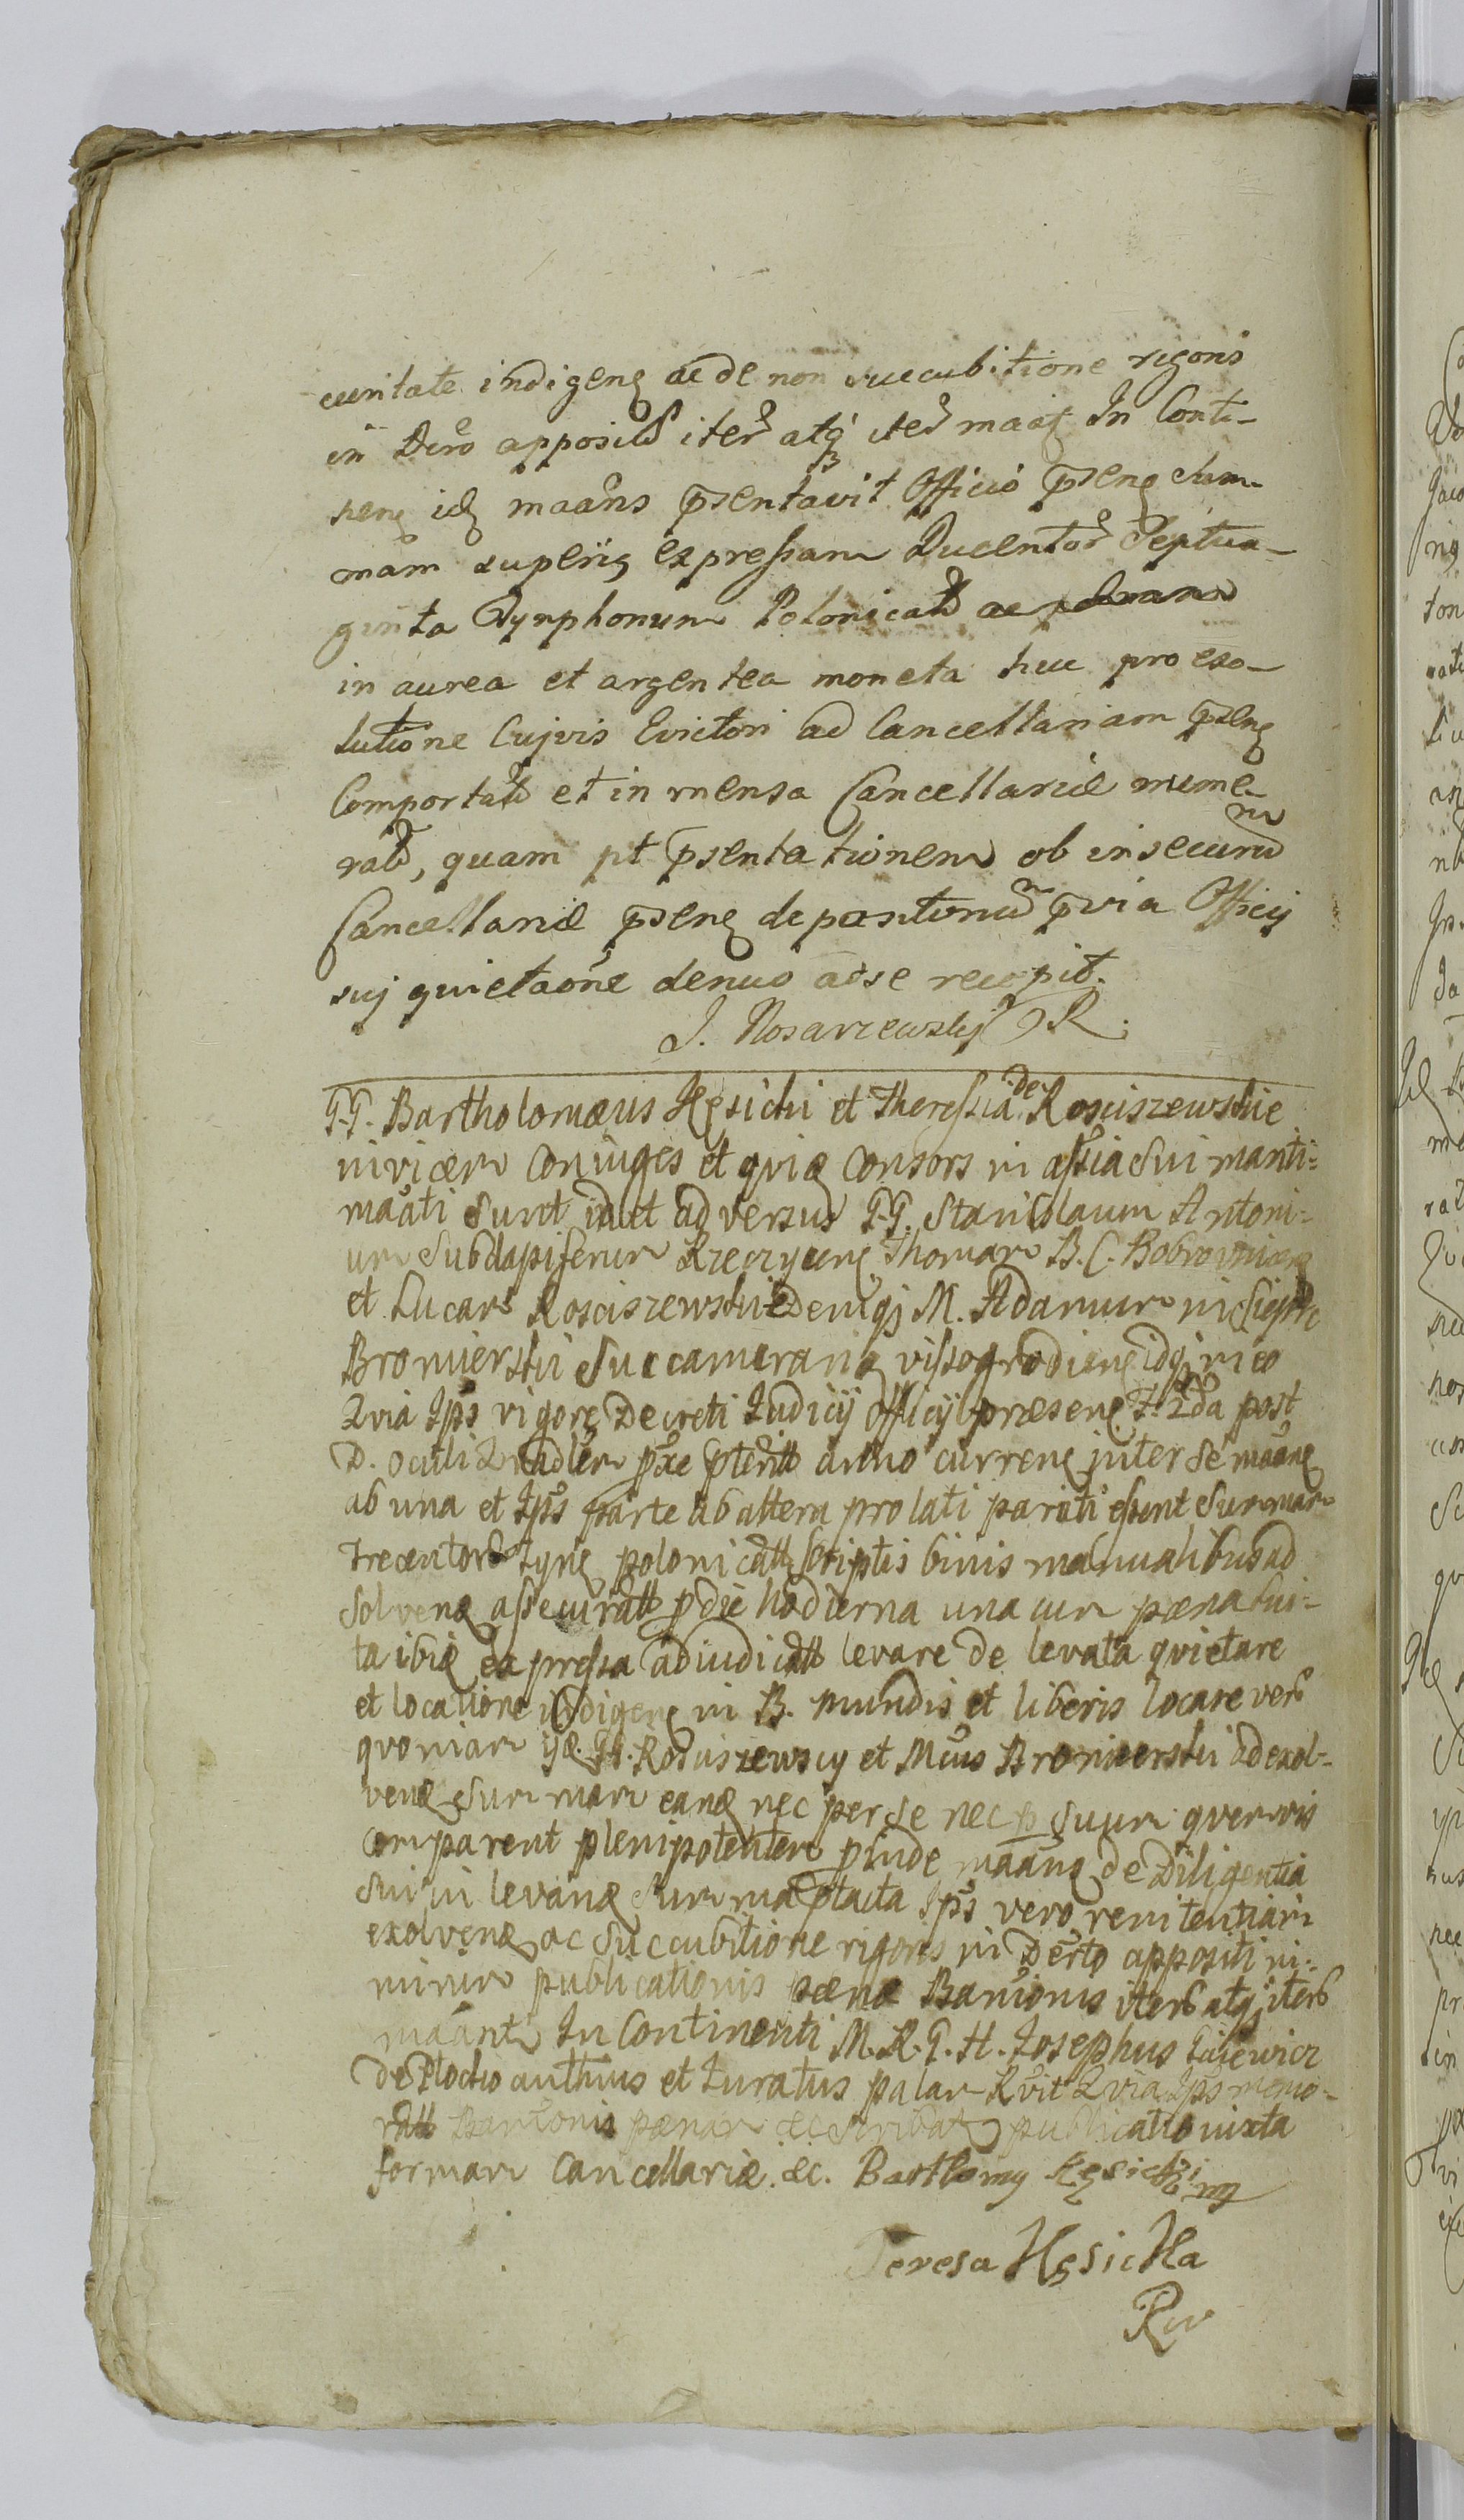 curitate indigen ac de non succubitione rigoris
in Dcro apposit iter atq iter maaĝ In Conti-
nen id maans psentavit Officio psen sum-
mam superig expressam Ducentor Septua-
ginta Tynphonum Polonicat
in aurea et argentea moneta huc pro exo-
lutione Cujvis Evictori ad Cancellariam psen
Comportat et in mensa Cancellariæ nume-
rat, quam pt psentationem ob insecurū
Cancellariæ psen depositoriū pvia Officij
suj quietaone denuo ad se recepit.
J. Nosarzewskij
G.G. Bartholomæus Kęsicki et Theressia de Rosciszewskie
invicem coniuges et quiæ consors in assia sui mariti
maati sunt id et adversus G.G. Stanislaum Antoni-
um Subdapiferum Rzeczycen Thomam B. C. Bobrownicen
et Lucam Rosciszewskie Deniq M. Adamum in Sieprc
Bromierski Succamerariū vissogrodien idq in eo
Quia Ips vigore Decreti Iudicij Officij præsen F. 2da post
D. oculi Qradlem pxe pterit anno curren inter se maan
ab una et Ips parte ab altera prolati parati essent Summam
Trecentor Tyn polonicatt Scriptis binis manualibus ad
Solven assecuratt p die hodierna una cum pæna lui-
ta ibiq expressa adiudicatt levare de levata quietare
et locatione indigen in B. mundis et liberis locare ver
quoniam ijd. GG. Rosciszewscy et Mcus Bromierski ad exol-
ven Summam eand nec per se nec p suum quemvis
comparent plenipotentem pinde maans de Diligentia
Sui in levand Summa ptacta Ips vero renitentiam
exolven ac Succubitione rigoris in Dcrto appositi ni-
mirum publicationis pænæ Banionis iter atq iter
maant In Continenti M. R. G. H. Iosephus Gaiewicz
de Plocko authus et Iuratus palam Rvit Quia Ips memo-
ratt Banionis pænam publicatio iuxta
formam Cancellariæ. &c. Bartłomiy Kęsicki mp
Teresa Kęsicka